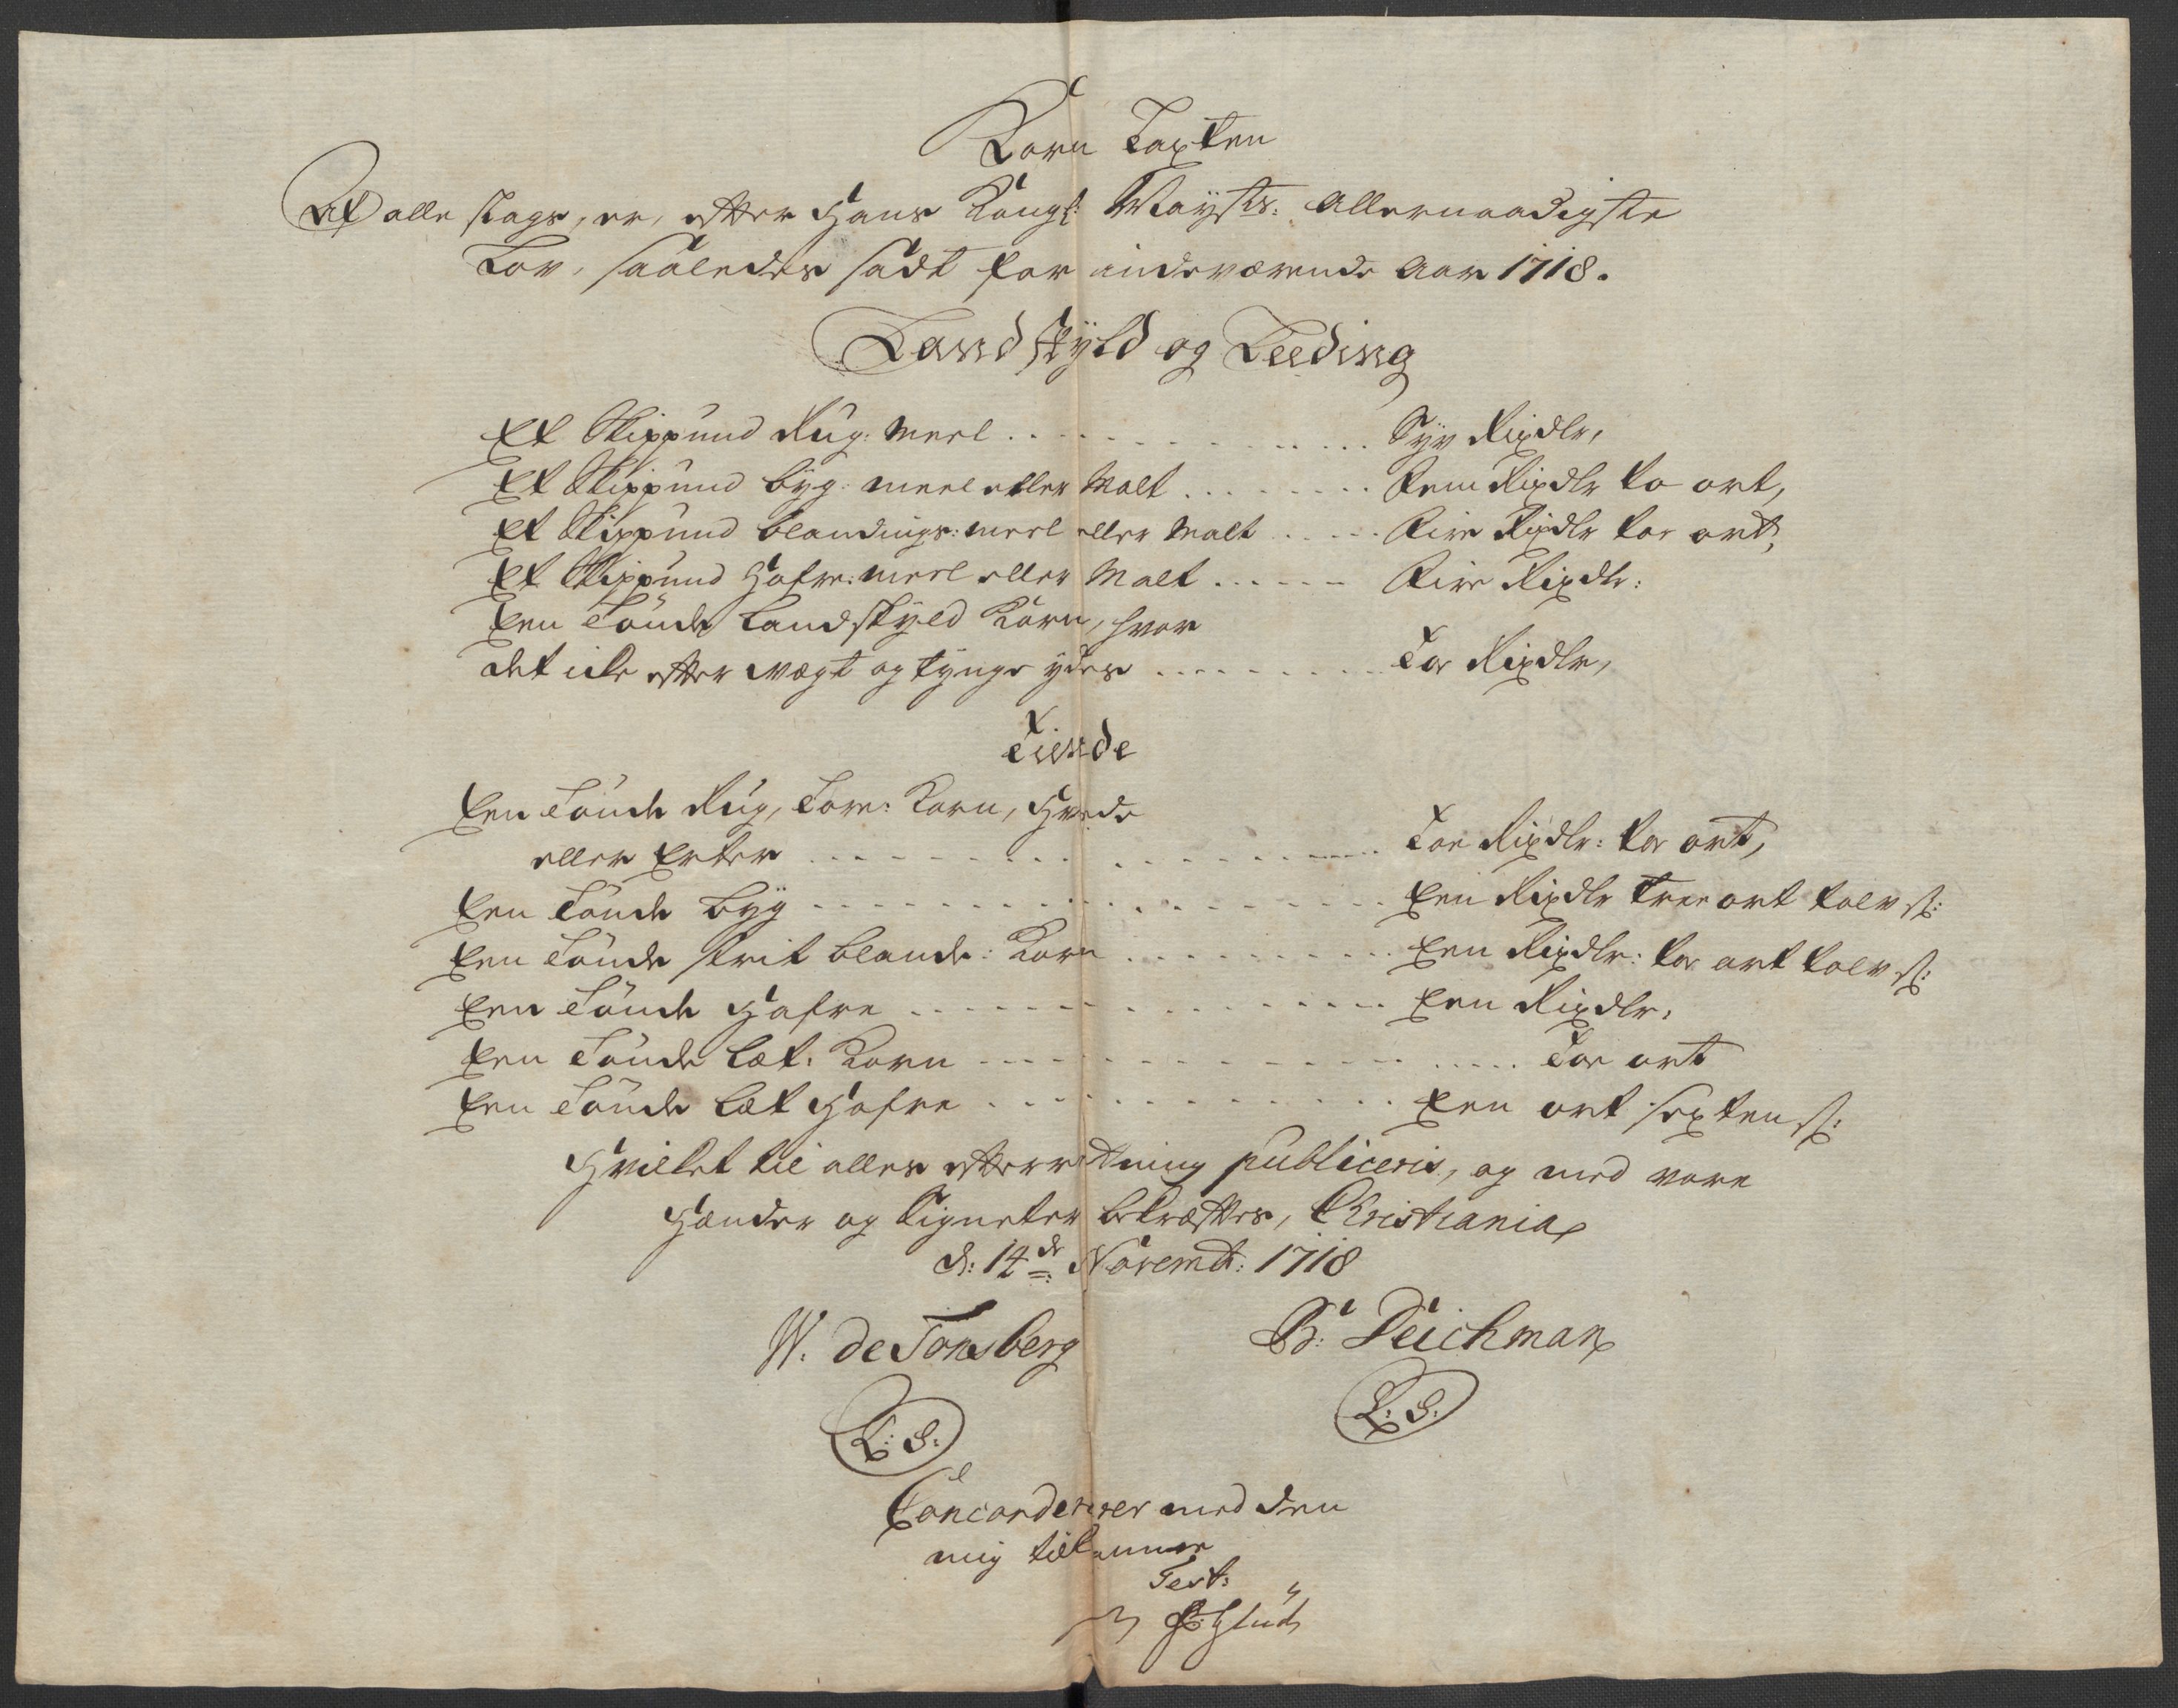 Korn Taxten
Af alle slags, er, effter Hans Kongl: Maÿsts: Allernaadigste
Lov, saaledes sadt for indeværende Aar 1718.
Landskÿld og Leeding
Et Skippund Rug: Meel . . . . . . . . . Syv Rixdlr,
Et Skippund byg: meel eller Malt . . . . . . . . Fem Rixdlr to ort,
Et Skippund blandings: meel eller Malt . . . . . Fire Rixdlr toe ort,
Et Skippund Hafre: meel eller Malt . . . . . . Fire Rixdlr:
Een Tønde Landskyld Korn, hvor
det icke effter vegt og tynge ydes . . . . . . . . . Toe Rixdlr,
Tiende
Een Tønde Rug, Tore: Korn, Hvede
eller Erter . . . . . . . . . . . Toe Rixdlr: toe ort,
Een Tønde byg . . . . . . . . . . . Een Rixdlr tree ort tolv s:
Een Tønde skrit blande: Korn . . . . . . . . . Een Rixdlr: toe ort tolv s:
Een Tønde Hafre . . . . . . . . . . . Een Rixdlr:
Een Tønde Læt: Korn . . . . . . . . . . . Toe ort
Een Tønde Læt Hafre . . . . . . . . . . . Een ort sexten s:
Hvilket til alles efterretning publiceris, og med vore
Hænder og Signeter bekræfftes, Christiania
d: 14de Novembr: 1718
W. de Tonsberg B: Deichman
L: S: L: S:
Concorderer med den
mig tilkomne
Test: